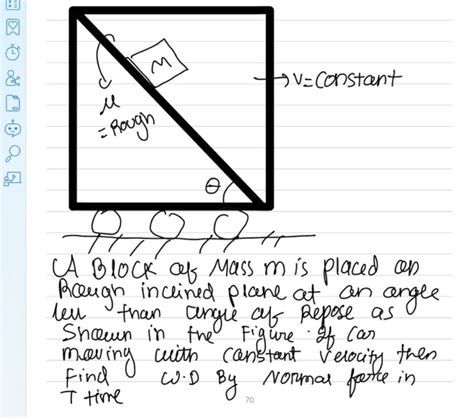 M
→ V = Constant
μ
= Rough
θ
A Block of Mass m is placed on
Rough inclined plane at an angle
less than angle of Repose as
Shown in the Figure. If Car
moving with constant velocity then
Find W.D By Normal force in
T time
70